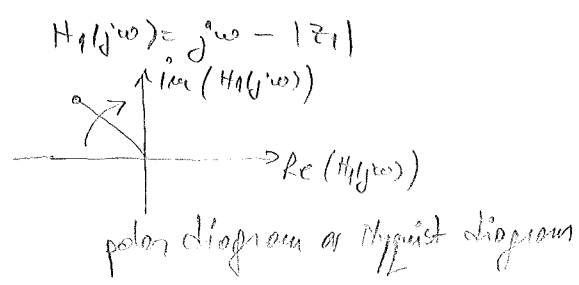 H₁(jω) = jω − |z₁|
im (H₁(jω))
Re (H₁(jω))
polar diagram or Nyquist diagram